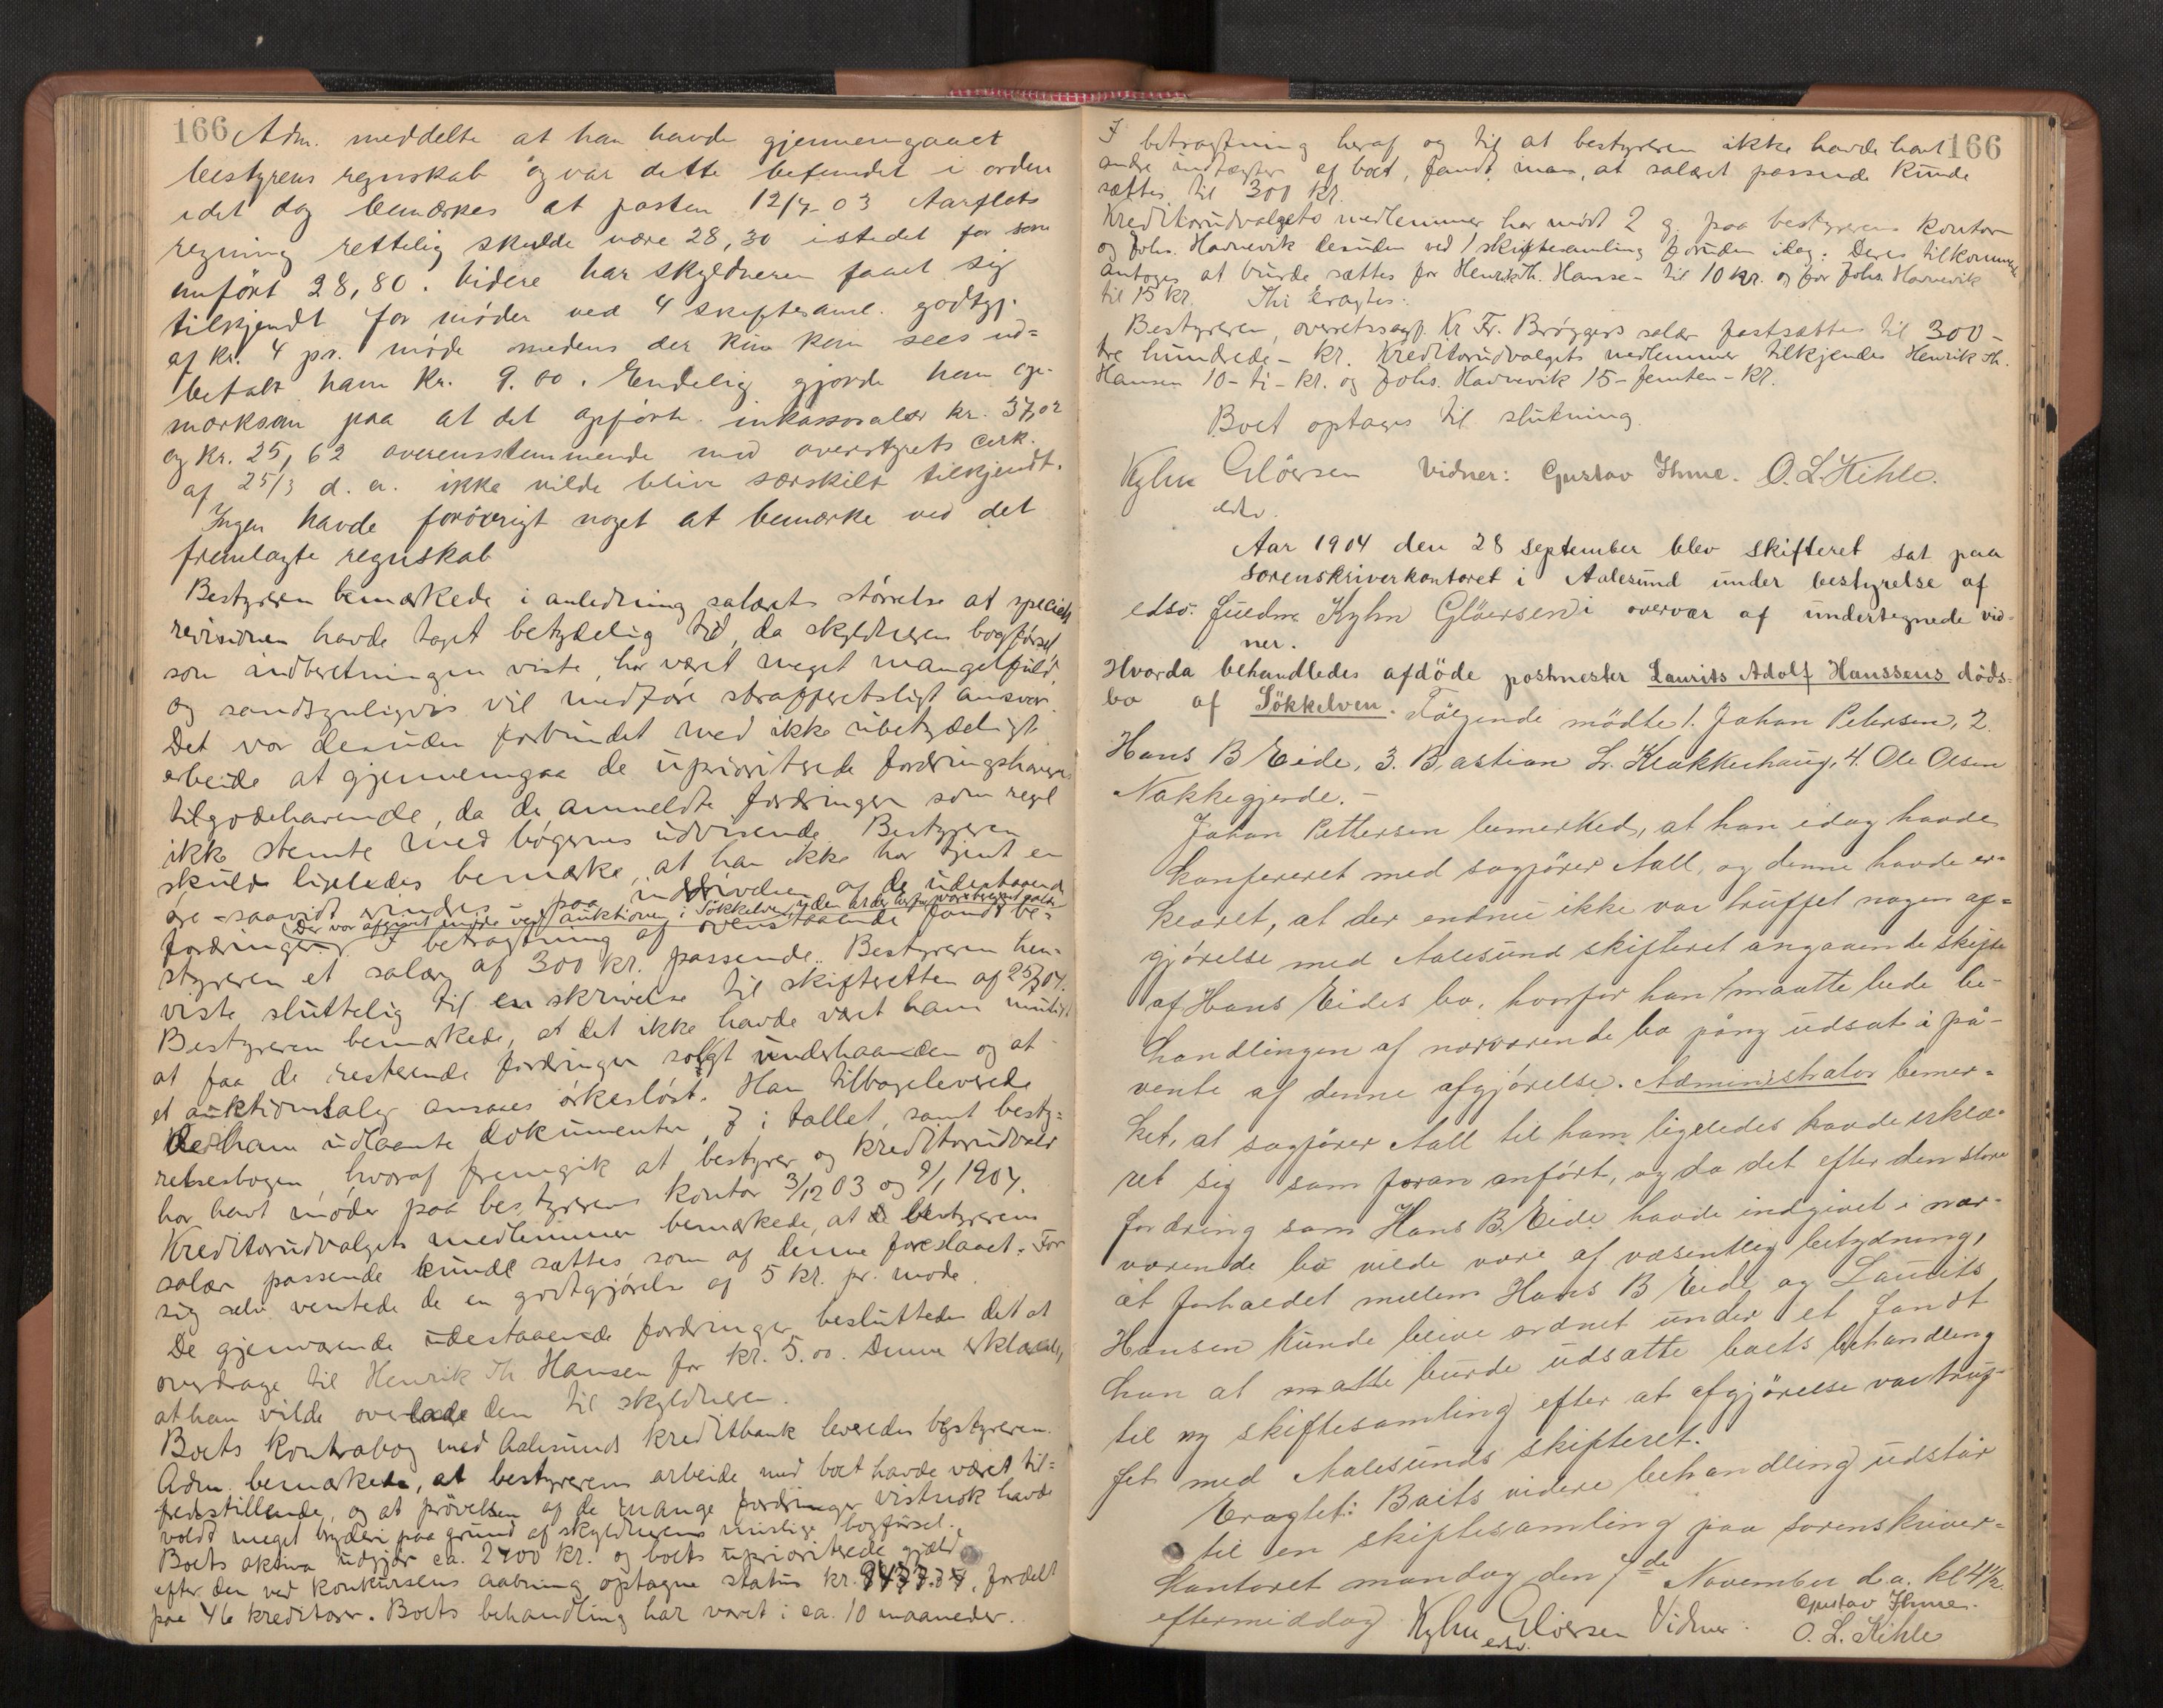 166 Adm. meddelte at han havde gjennemgaaet
bestyrens regnskab og var dette befundet i orden
idet dog bemærkes at posten 12/7-03 Aarflots
regning rettelig skulde være 28,30 istedet for som
anført 28,80. Videre har skyldneren faaet sig
tilkjendt for møder ved 4 skiftesaml. godtgj.
af kr. 4 pr. møde medens der kun kan sees ud=
betalt ham kr. 9.00. Endelig gjorde han op-
mærksom paa at det opførte inkassosalær kr. 37,02
og kr. 25,62 overensstemmende med overstyrets cirk.
af 25/3 d. a. ikke vilde blive særskilt tilkjendt.
Ingen havde forøvrigt noget at bemærke ved det
fremlagte regnskab
Bestyreren bemærkede i anledning salærets størrelse at specielt
revisionen havde taget betydelig tid, da skyldneren bogførsel,
som indberetningen viste, har været meget mangelfuld,
og sandsynligvis vil medføre strafferetsligt ansvar.
Det var desuden forbundet med ikke ubetydeligt
arbeide at gjennemgaa de uprioriterede fordringshaveres
tilgodehavende, da de anmeldte fordringer som regel
ikke stemte med bøgernes udvisende. Bestyreren
skulde ligeledes bemærke, at han ikke har tjent en
øre - saavidt vindes - paa inddrivelsen af de udestaaende
(Der var afgivet møde ved auktionen i Søkkelven, uden at der herfor var beregnet salær
fordringer. I betragtning af ovenstaaende fandt be-
styreren et salær af 300 kr. passende. Bestyreren hen-
viste sluttelig til en skrivelse til skifteretten af 25/7 04.
Bestyreren bemærkede, at det ikke havde været ham muligt
at faa de resterende fordringer solgt underhaanden og at
et auktionsalg ansaaes ørkesløst. Han tilbageleverede
de ham udlaante dokumenter, 7 i tallet, samt besty=
relsesbogen, hvoraf fremgik at bestyrer og kreditorudvalg
har havt møder paa bestyrerens kontor 3/12 03 og 9/1 1904.
Kreditorudvalgets medlemmer bemærkede, at bestyrerens
salær passende kunde sættes som af denne foreslaaet. For
sig selv ventede de en godtgjørelse af 5 kr. pr. møde.
De gjenværende udestaaende fordringer besluttedes det at
overdrage til Henrik Th Hansen for kr. 5.00. Denne erklærede,
at han vilde overlade den til skyldneren.
Boets kontrabog med Aalesunds kreditbank leveredes bestyreren.
Adm. bemærkede, at bestyrerens arbeide med boet havde været til=
fredsstillende, og at prøvelsen af de mange fordringer vistnok havde
voldt meget bryderi paa grund af skyldnerens mislige bogførsel.
Boets aktiva udgjør ca. 2400 kr. og boets uprioriterede gjæld
efter den ved konkursens aabning optagne status kr. , fordelt
paa 46 kreditorer. Boets behandling har varet i ca. 10 maaneder.
I betragtning heraf og til at bestyreren ikke havde havt 166
andre indtægter af boet, fandt man, at salæret passende kunde
sættes til 300 kr.
Kreditorudvalgets medlemmer har mødt 2 g. paa bestyrerens kontor
og Johs. Havnevik desuden ved 1 skiftesamling foruden idag. Deres tilkommende
antages at burde sættes for Henrik Th. Hansen til 10 kr. og for Johs. Havnevik
til 15 kr. Thi eragtes:
Bestyreren, overretssagf. Kr Fr. Brøggers salær fastsættes til 300 -
tre hundrede - kr. Kreditorudvalgets medlemmer tilkjendes Henrik Th.
Hansen 10 - ti - kr. og Johs. Havnevik 15 - femten - kr.
Boet optages til slutning.
Kyhn Gløersen Vidner: Gustav Ihme. O. L. Kihle.
edsv.
Aar 1904 den 28 september blev skifteret sat paa
sorenskriverkontoret i Aalesund under bestyrelse af
edsv. fuldm. Kyhn Gløersen i overvær af undertegnede vid=
ner.
Hvorda behandledes afdøde postmester Laurits Adolf Hanssens døds=
bo af Søkkelven. Følgende mødte 1. Johan Petersen, 2.
Hans B Eide, 3. Bastian L. Klokkerhaug, 4. Ole Olsen
Nakkegjerde. -
Johan Pettersen bemerked, at han idag havde
konfereret med sagfører Aall, og denne havde er=
klæret, at der endnu ikke var truffet nogen af=
gjørelse med Aalesund skifteret angaaende skifte
af Hans Eides bo, hvorfor han maatte bede be-
handlingen af nærværende bo påny udsat i på-
vente af denne afgjørelse. Administrator bemer=
ket, at sagfører Aall til ham ligeledes havde erklæ=
ret sig som foran anført, og da det efter den store
fordring som Hans B. Eide havde indgivet i nær-
værende bo vilde være af væsentlig betydning,
at forholdet mellem Hans B Eide og Laurits
Hansen kunde blive ordnet under et fandt
han at maatte burde udsætte boets behandling
til ny skiftesamling efter at afgjørelse var truf-
fet med Aalesunds skifteret.
Eragtet: Boets videre behandling udstår
til en skiftesamling paa sorenskriver=
kontoret mandag den 7de November d.a. kl 4½
eftermiddag. Kyhn Gløersen Vidner: Gustav Ihme.
edsv. O. L. Kihle